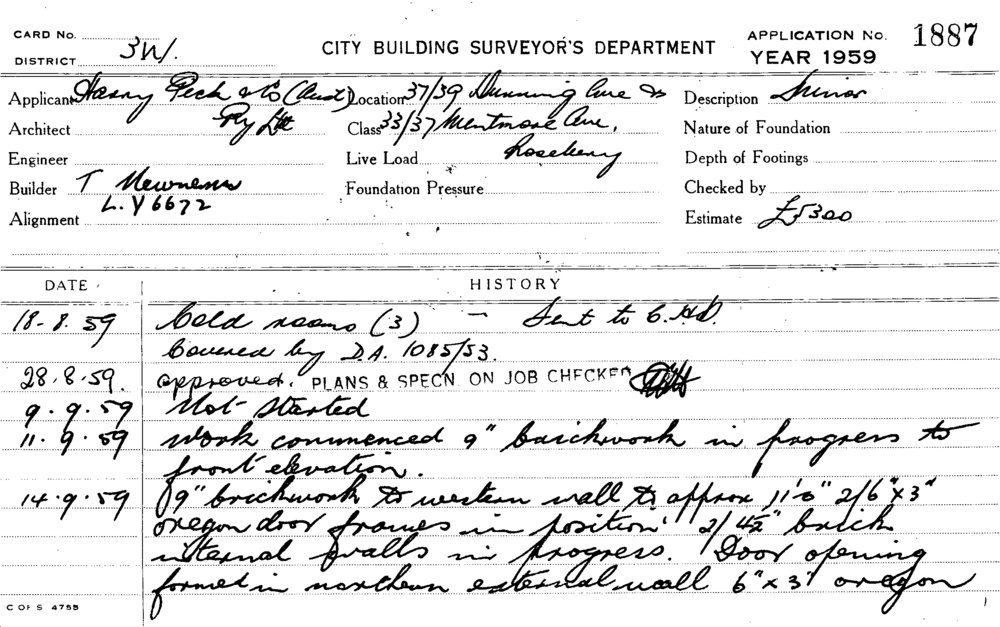 CARD No.
DISTRICT 3W.
CITY BUILDING SURVEYOR'S DEPARTMENT
APPLICATION No. 1887
YEAR 1959
Applicant Harry Peck & Co (Aust) Location 37/39 Dunning Ave & Description Minor
Architect Pty Ltd Class 33/37 Mentmore Ave, Nature of Foundation
Engineer Live Load Rosebery Depth of Footings
Builder T Newnes Foundation Pressure Checked by
L.Y 6672
Alignment Estimate £5300
DATE HISTORY
18.8.59 Cold rooms (3) - Sent to C.H.D.
Covered by D.A. 1085/53.
28.8.59. approved. PLANS & SPECN. ON JOB CHECKED
9.9.59 Not started
11.9.59 Work commenced 9" brickwork in progress to
front elevation.
14.9.59 9" brickwork to western wall to approx 11'0" 2/6"x3"
oregon door frames in position 2/4½" brick
internal walls in progress. Door opening
formed in northern external wall 6"x3" oregon
C OF S 4755